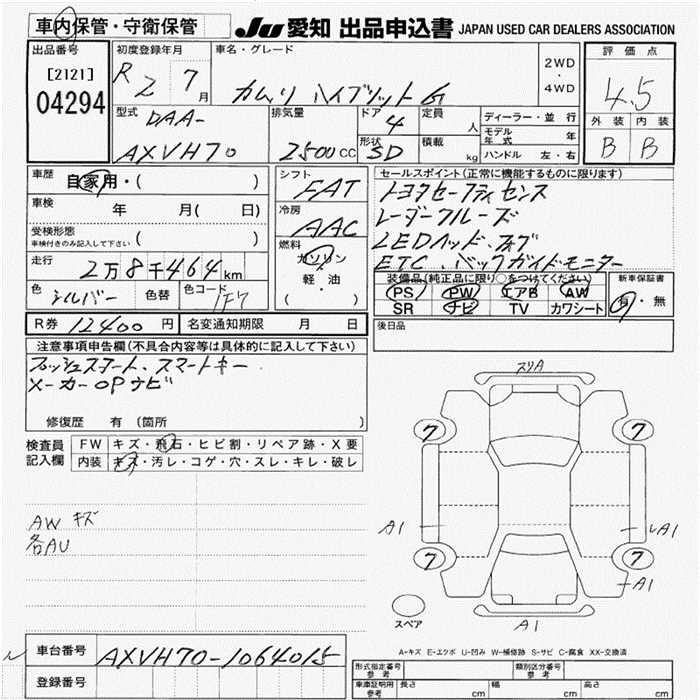 車内保管・守衛保管
JU 愛知 出品申込書 JAPAN USED CAR DEALERS ASSOCIATION
出品番号
[2121]
04294
初度登録年月
R2 7月
車名・グレード
カムリ ハイブリット G
2WD
・
4WD
評価点
4.5
外装 内装
B B
型式
DAA-
AXVH70
排気量
2500cc
ドア
4
形状
SD
定員
人
積載
kg
ディーラー・並行
モデル年式 年
ハンドル 左・右
車歴
自家用・( )
車検
年 月( 日)
受検形態
車検付きのみ記入して下さい ( )
走行
2万8千464km
色
シルバー
色替
色コード
1F7
シフト
FAT
冷房
AAC
燃料
ガソリン
軽・油
( )
セールスポイント(正常に機能するものに限ります)
トヨタセーフティセンス
レーダークルーズ
LEDヘッド.フォグ
ETC.バックガイドモニター
装備品(純正品に限り○をつけてください)
PS PW エアB AW
SR ナビ TV カワシート
新車保証書
有・無
R券 12400円
名変通知期限 月 日
後日品
注意事項申告欄(不具合内容等は具体的に記入して下さい)
プッシュスタート、スマートキー
メーカーOPナビ
修復歴 有 (箇所 )
検査員
記入欄
FW キズ・飛石・ヒビ割・リペア跡・X要
内装 キズ・汚レ・コゲ・穴・スレ・キレ・破レ
AW キズ
各AU
スリA
7
7
A1
A1
7
7
A1
A1
スペア
A-キズ E-エクボ U-凹み W-補修跡 S-サビ C-腐食 XX-交換済
車台番号 AXVH70-1064015
登録番号
形式指定番号
参考
類別区分番号
参考
車庫証明用
参考
長さ cm
幅 cm
高さ cm